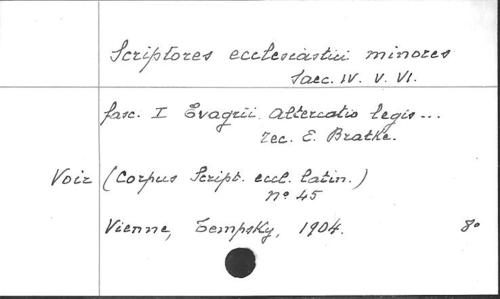 Scriptores ecclesiastici minores
Saec. IV. V. VI.
fasc. I Evagrii. Altercatio legis...
rec. E. Bratke.
Voir (Corpus Script. eccl. latin.)
nº 45
Vienne, Tempsky, 1904. 8º